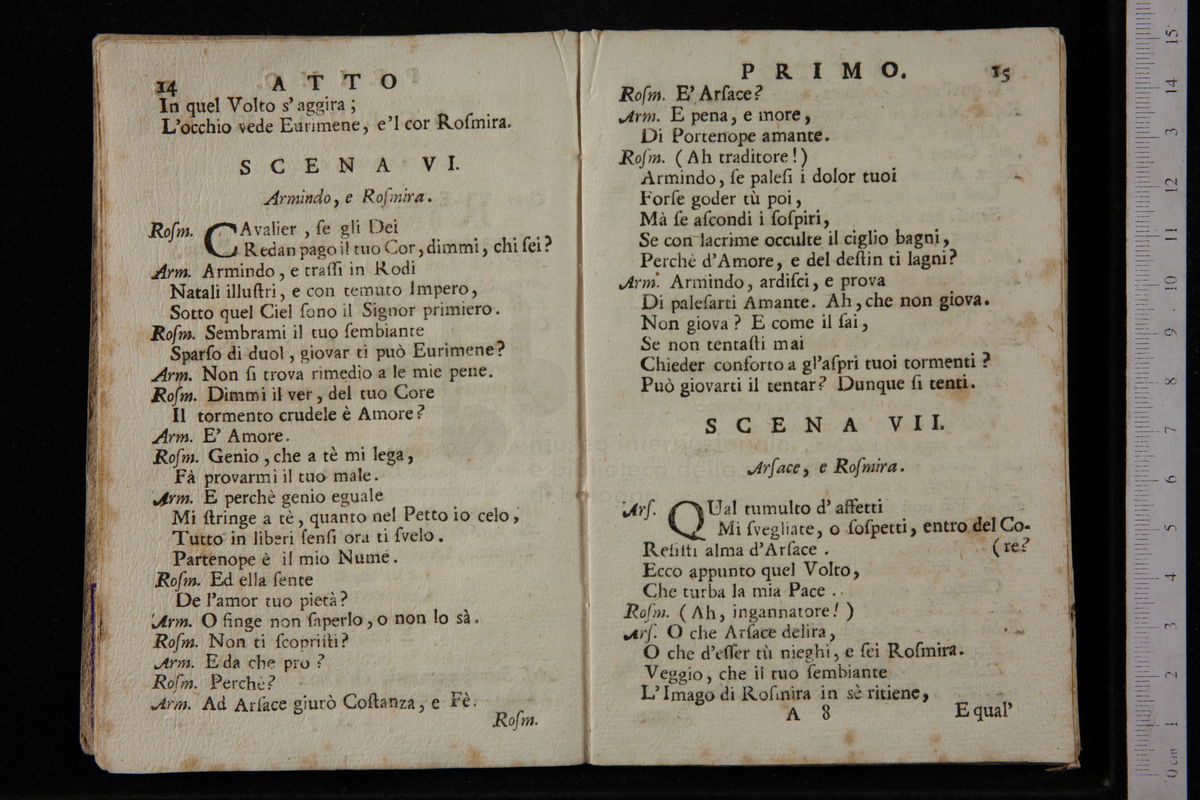 14 ATTO
In quel Volto s'aggira;
L'occhio vede Eurimene, e'l cor Roſmira.
SCENA VI.
Armindo, e Roſmira.
Roſm. CAvalier, ſe gli Dei
Redan pago il tuo Cor, dimmi, chi ſei?
Arm. Armindo, e traſſi in Rodi
Natali illuſtri, e con temuto Impero,
Sotto quel Ciel ſono il Signor primiero.
Roſm. Sembrami il tuo ſembiante
Sparſo di duol, giovar ti può Eurimene?
Arm. Non ſi trova rimedio a le mie pene.
Roſm. Dimmi il ver, del tuo Core
Il tormento crudele è Amore?
Arm. E' Amore.
Roſm. Genio, che a tè mi lega,
Fà provarmi il tuo male.
Arm. E perchè genio eguale
Mi ſtringe a tè, quanto nel Petto io celo,
Tutto in liberi ſenſi ora ti ſvelo.
Partenope è il mio Nume.
Roſm. Ed ella ſente
De l'amor tuo pietà?
Arm. O finge non ſaperlo, o non lo sà.
Roſm. Non ti ſcopriſti?
Arm. E da che pro?
Roſm. Perchè?
Arm. Ad Arſace giurò Coſtanza, e Fè.
Roſm.
PRIMO. 15
Roſm. E' Arſace?
Arm. E pena, e more,
Di Portenope amante.
Roſm. (Ah traditore!)
Armindo, ſe paleſi i dolor tuoi
Forſe goder tù poi,
Mà ſe aſcondi i ſoſpiri,
Se con lacrime occulte il ciglio bagni,
Perchè d'Amore, e del deſtin ti lagni?
Arm. Armindo, ardiſci, e prova
Di paleſarti Amante. Ah, che non giova.
Non giova? E come il ſai,
Se non tentaſti mai
Chieder conforto a gl'aſpri tuoi tormenti?
Può giovarti il tentar? Dunque ſi tenti.
SCENA VII.
Arſace, e Roſmira.
Arſ. QUal tumulto d'affetti
Mi ſvegliate, o ſoſpetti, entro del Co-
Reſiſti alma d'Arſace. (re?
Ecco appunto quel Volto,
Che turba la mia Pace.
Roſm. (Ah, ingannatore!)
Arſ. O che Arſace delira,
O che d'eſſer tù nieghi, e ſei Roſmira.
Veggio, che il tuo ſembiante
L'Imago di Roſmira in sè ritiene,
A 8 E qual'
museo internazionale
e biblioteca della
di bo
15
14
13
12
11
10
9
8
7
6
5
4
3
2
1
0 cm